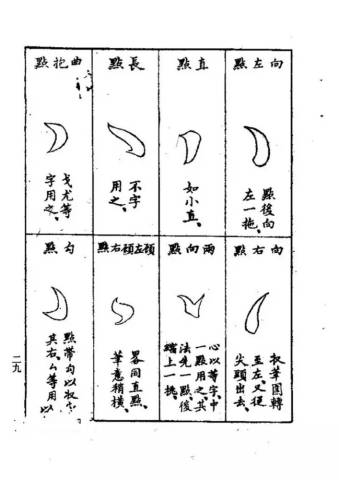 向左點
點後向
左一拖、
直點
如小直、
長點
不字
用之、
曲抱點
戈尤等
字用之、
向右點
收筆圓轉
至左又從
尖頭出去、
兩向點
心以等字、中
一點用之、其
法先一點後
端上一挑、
顧左顧右點
畧同直點、
筆意稍橫、
勾點
點帶勾以
其右、厶等用以
二九